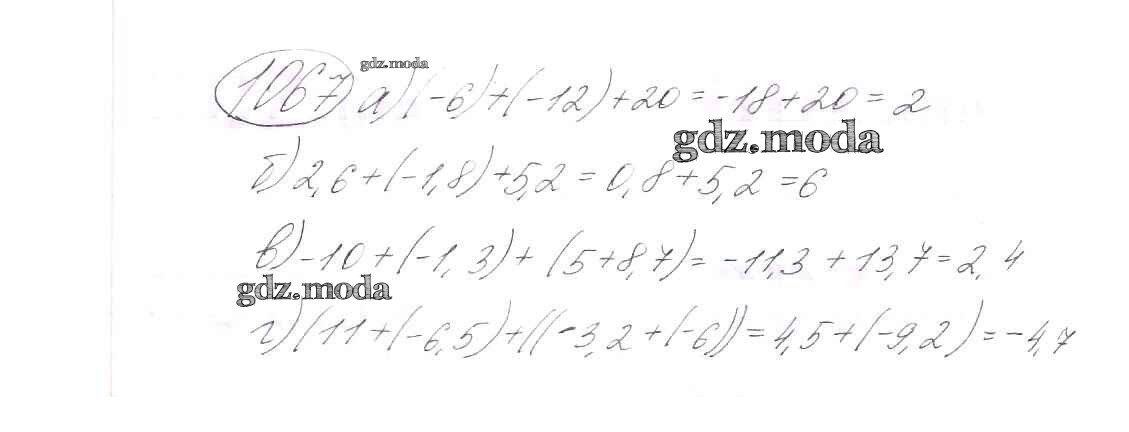 gdz.moda
1067 а) (-6)+(-12)+20=-18+20=2
gdz.moda
б) 2,6+(-1,8)+5,2=0,8+5,2=6
в) -10+(-1,3)+(5+8,7)=-11,3+13,7=2,4
gdz.moda
г) (11+(-6,5)+((-3,2+(-6))=4,5+(-9,2)=-4,7